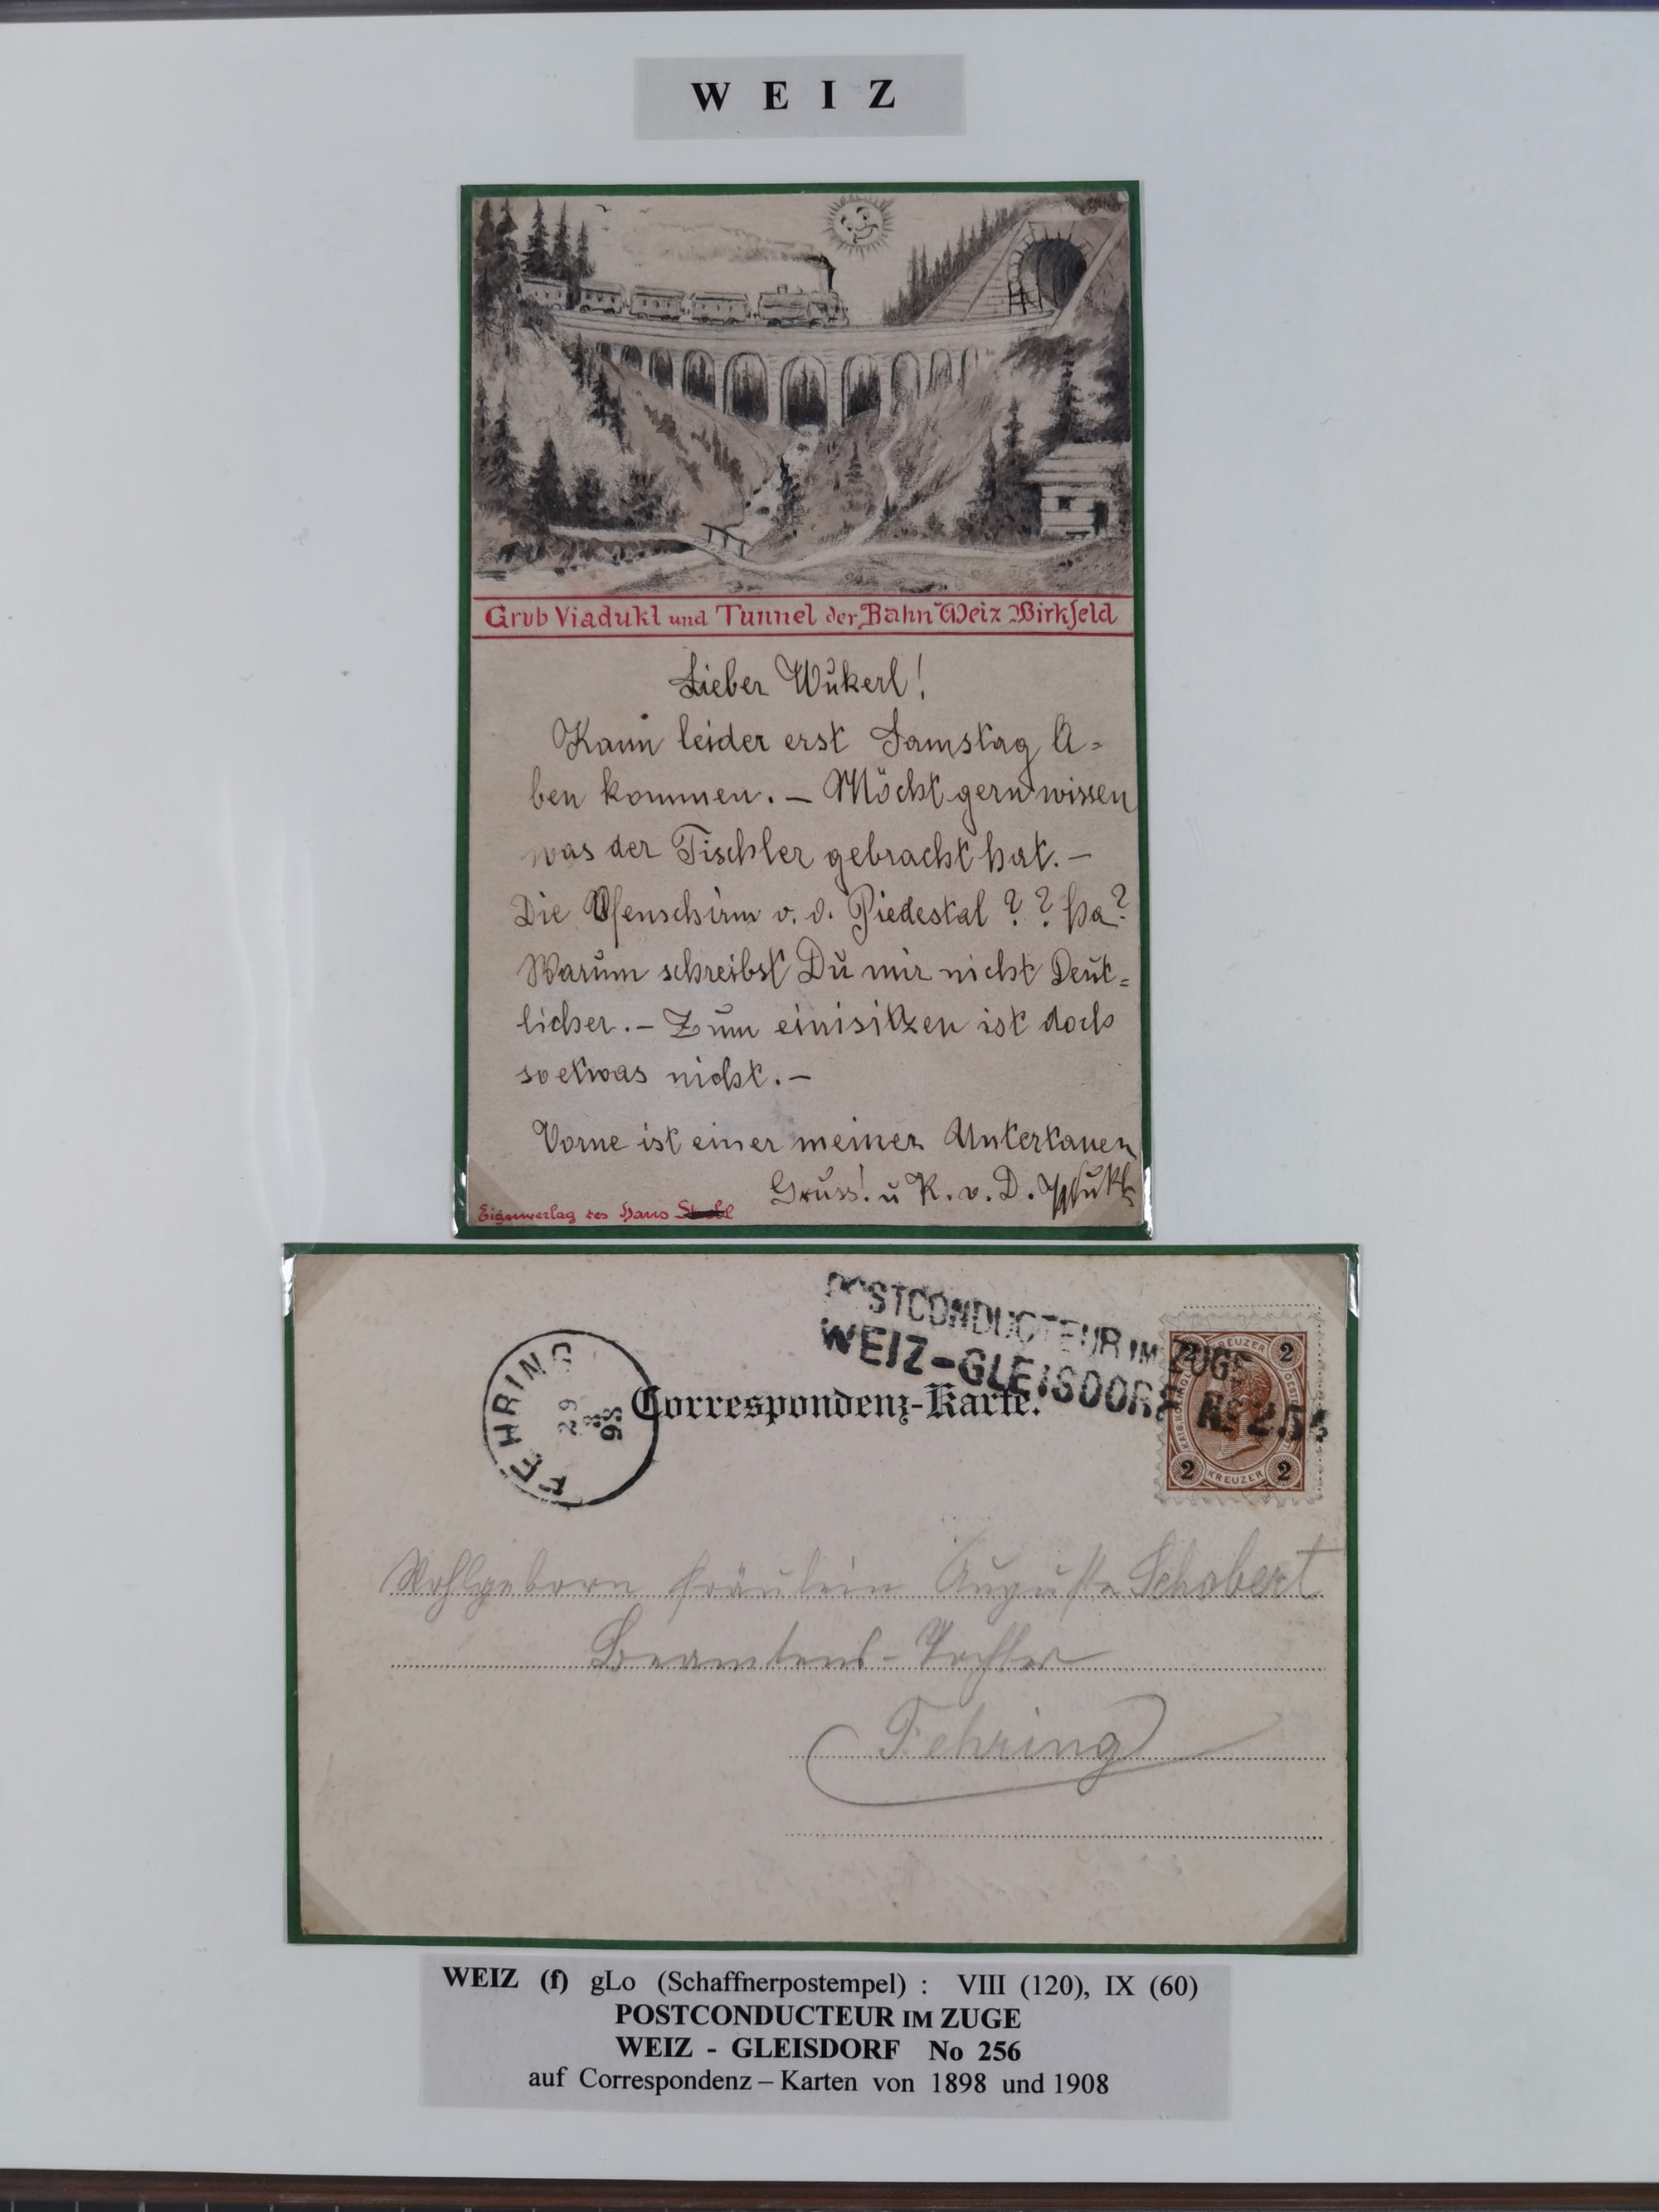 WEIZ
Grub Viadukt und Tunnel der Bahn Weiz Birkfeld
Lieber Wukerl!
Kann leider erst Samstag A=
ben kommen. – Möcht gern wissen
was der Tischler gebracht hat. –
Die Ofenschirm v. d. Piedestal ? ? Ha?
Warum schreibst Du mir nicht Deut=
licher. – Zum einisitzen ist doch
so etwas nicht. –
Vorne ist einer meiner Unterkanen
Gruss! u K. v. D.
Eigenverlag des Hans
POSTCONDUCTEUR IM ZUGE
WEIZ-GLEISDORF No
FEHRING
29
8
98
Correspondenz-Karte.
2 KREUZER 2
2 KREUZER 2
Wohlgeborn Fräulein Auguste Schobert
Beamtens-Tochter
Fehring
WEIZ (f) gLo (Schaffnerpostempel) : VIII (120), IX (60)
POSTCONDUCTEUR IM ZUGE
WEIZ - GLEISDORF No 256
auf Correspondenz – Karten von 1898 und 1908